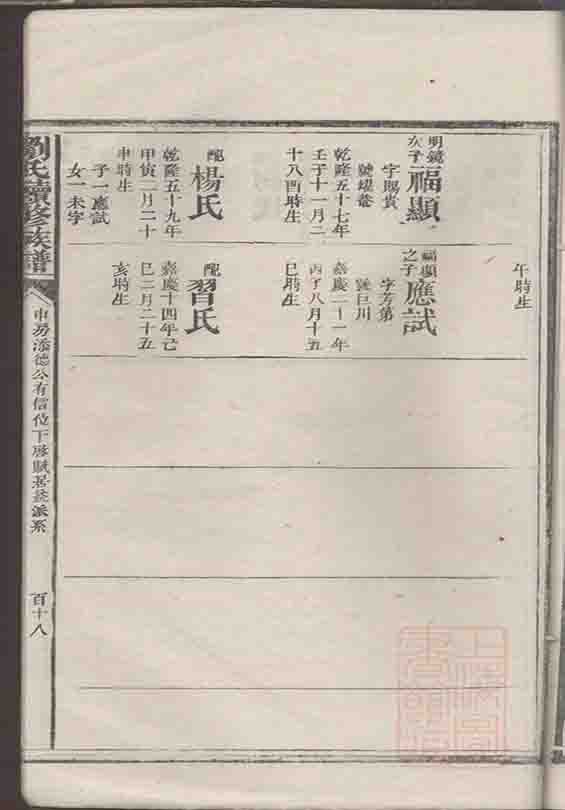 明鏡次子福顯
字賜貴
號燿菴
乾隆五十七年
壬子十一月二
十八酉時生
配楊氏
乾隆五十九年
甲寅二月二十
申時生
子一應試
女一未字
午時生
福顯之子應試
字芳第
號巨川
嘉慶二十一年
丙子八月十五
巳時生
配習氏
嘉慶十四年己
巳二月二十五
亥時生
劉氏續修族譜
百十八
上海圖書館藏